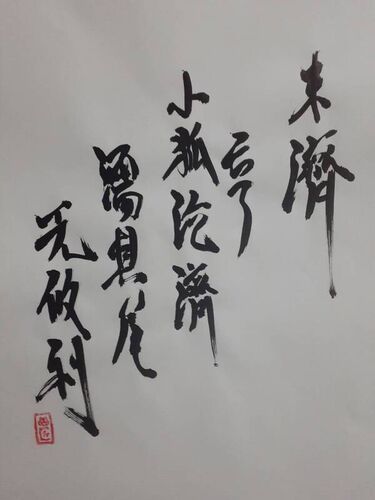 未濟
亨
小狐汔濟
濡其尾
无攸利